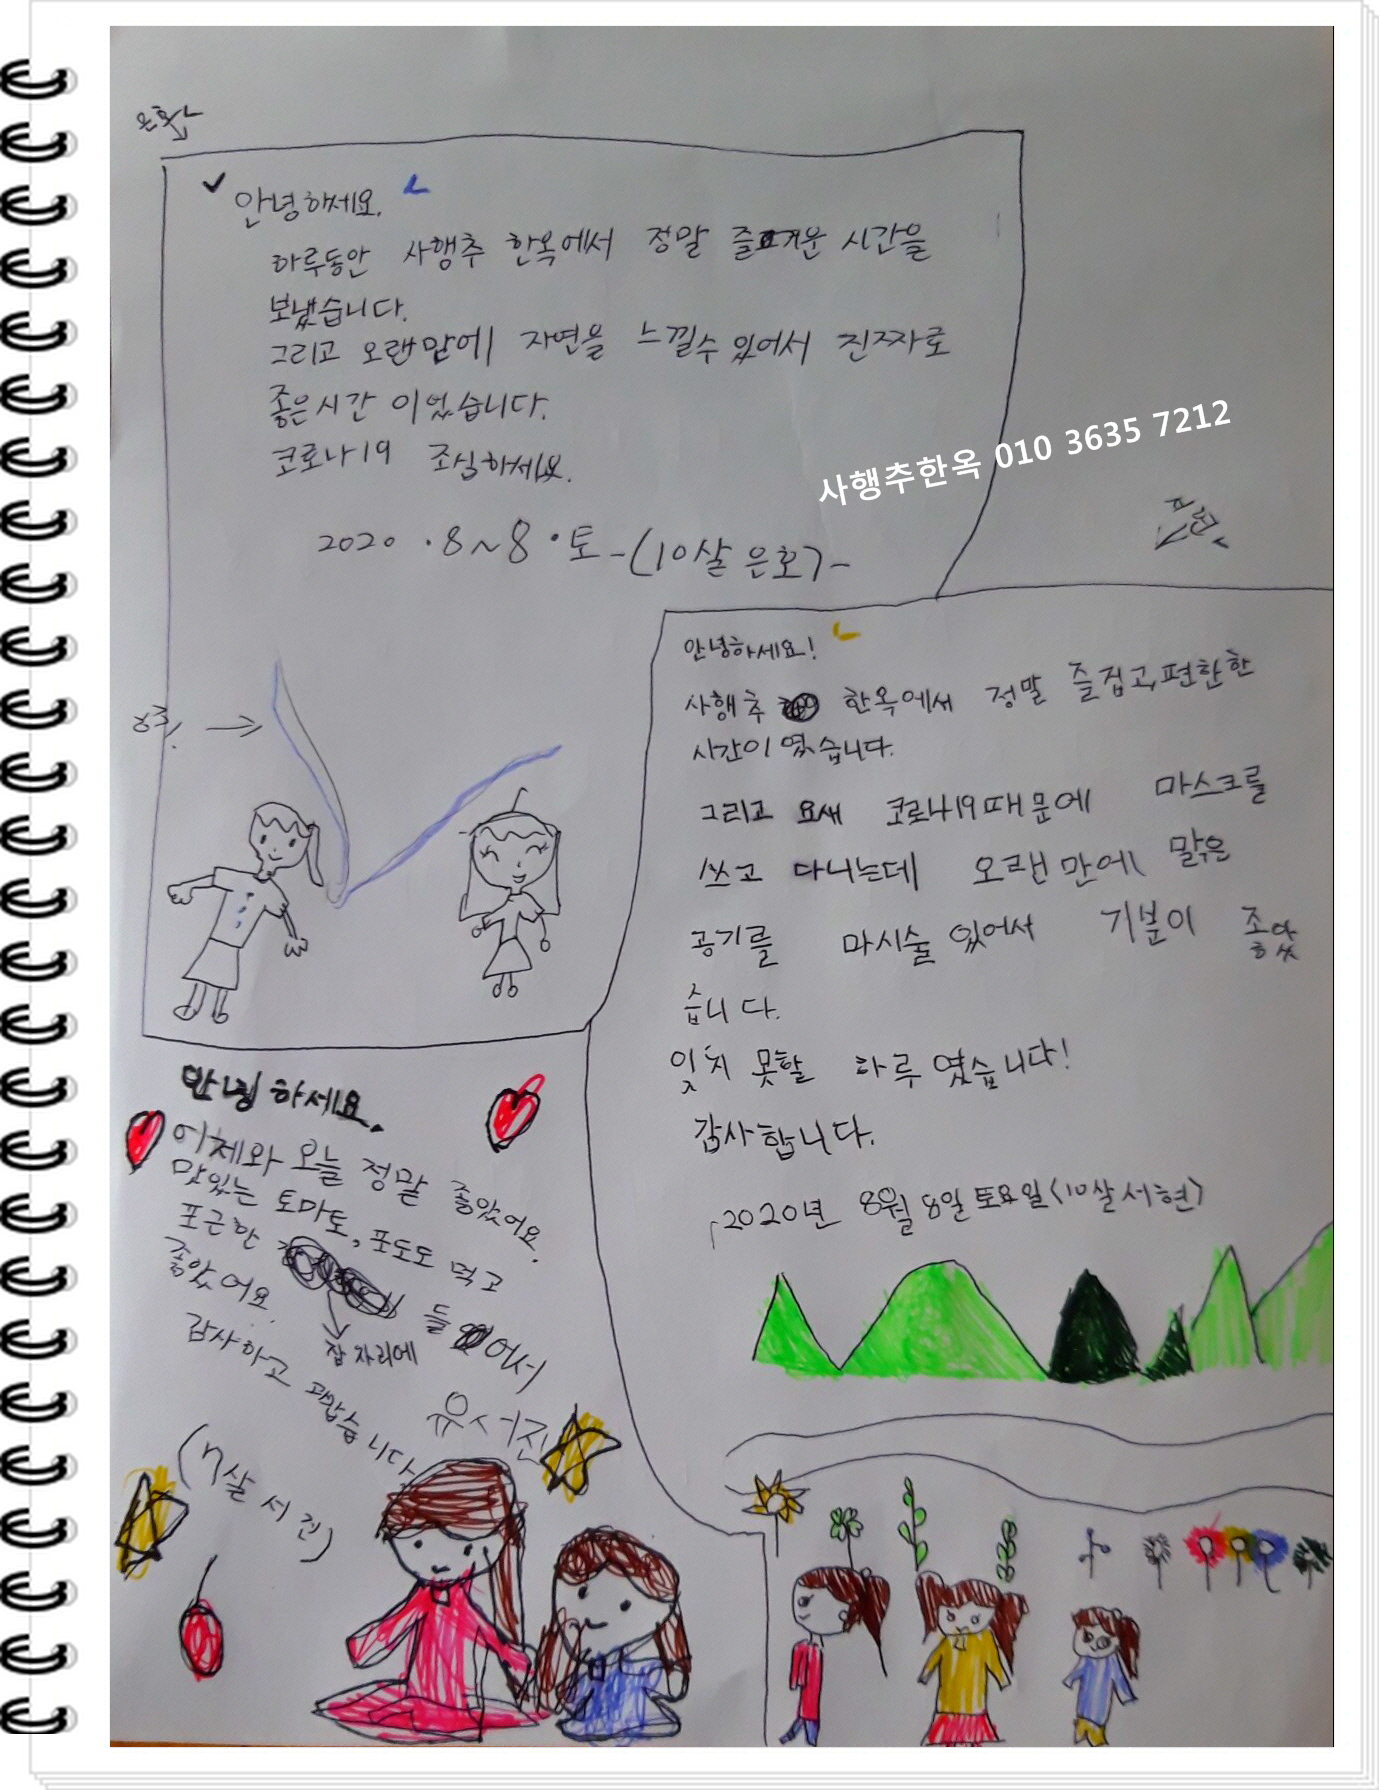 안녕하세요.
하루동안 사행추 한옥에서 정말 즐거운 시간을
보냈습니다.
그리고 오랜맡에 자연을 느낄수있어서 진짜로
좋은시간 이었습니다.
코로나19 조심하세요.
2020 . 8~8 . 토 -(10살 은호)-
사행추한옥 010 3635 7212
안녕하세요!
사행추 한옥에서 정말 즐집고,편한한
시간이 였습니다.
그리고 요새 코로나19때문에 마스크를
쓰고 다니는데 오랜만에 맑은
공기를 마시술있어서 기분이 좋았
습니다.
잊지 못할 하루였습니다!
감사합니다.
2020년 8월 8일 토요일(10살 서현)
안녕하세요.
어제와 오늘 정말 좋았어요.
맛있는 토마토, 포도도 먹고
포근한 잠자리에 들어서
좋았어요.
감사하고 고맙습니다.
유서진
(7살 서진)